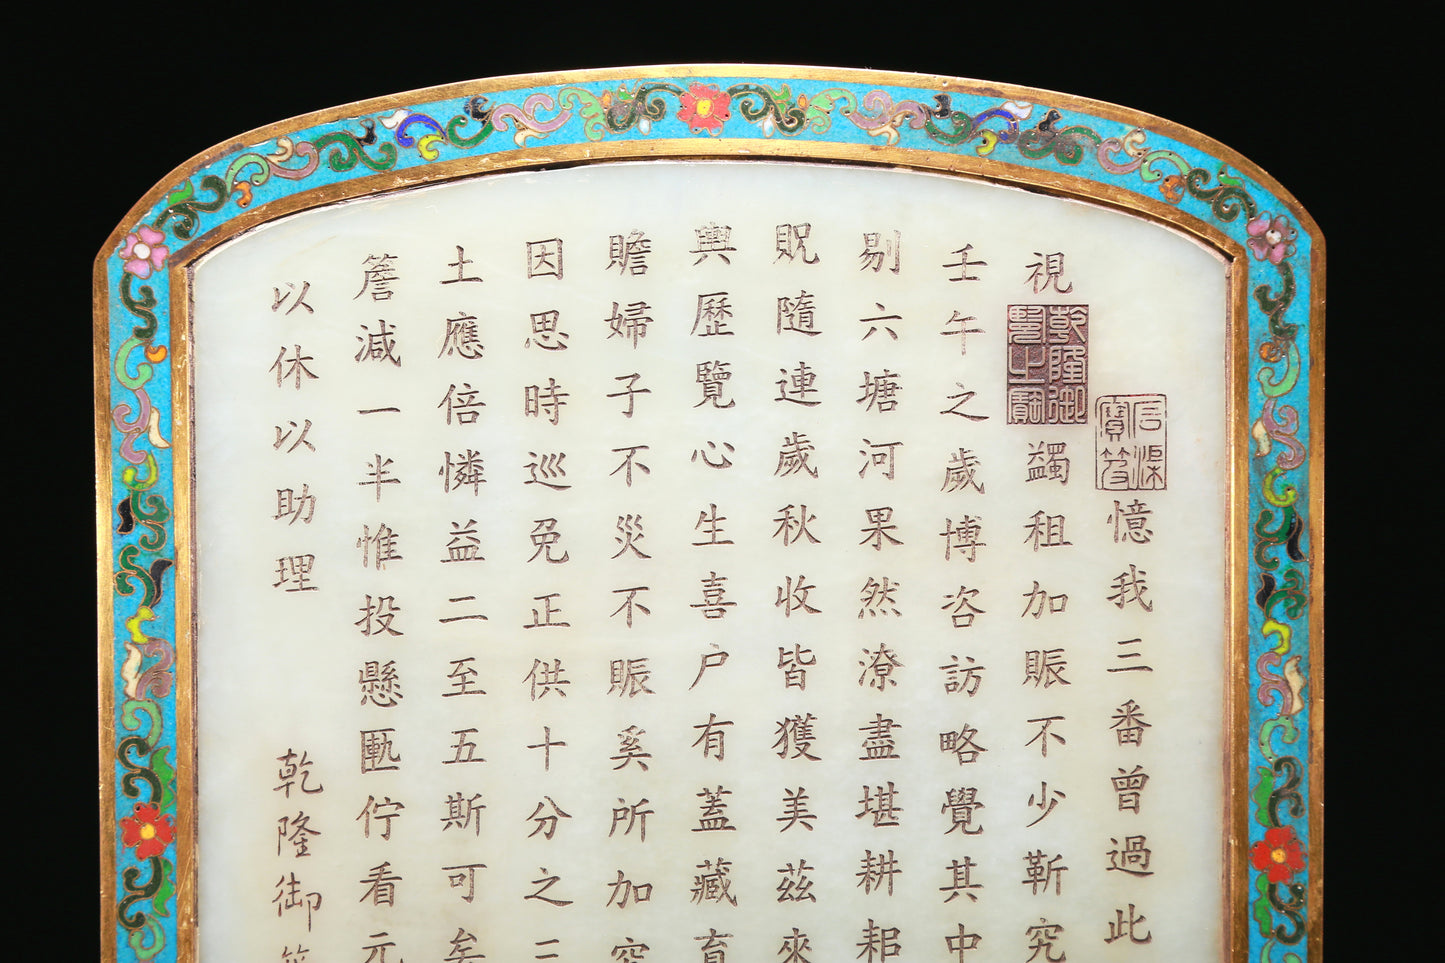 石渠寶笈 憶我三番曾過此
視 乾隆御覽之寶 蠲租加賑不少靳究
壬午之歲博咨訪略覺其中
剔六塘河果然潦盡堪耕耜
貺隨連歲秋收皆獲美茲來
輿歷覽心生喜户有蓋藏育
贍婦子不災不賑奚所加
因思時巡免正供十分之三
土應倍憐益二至五斯可矣
簷減一半惟投懸匭佇看元
以休以助理 乾隆御筆